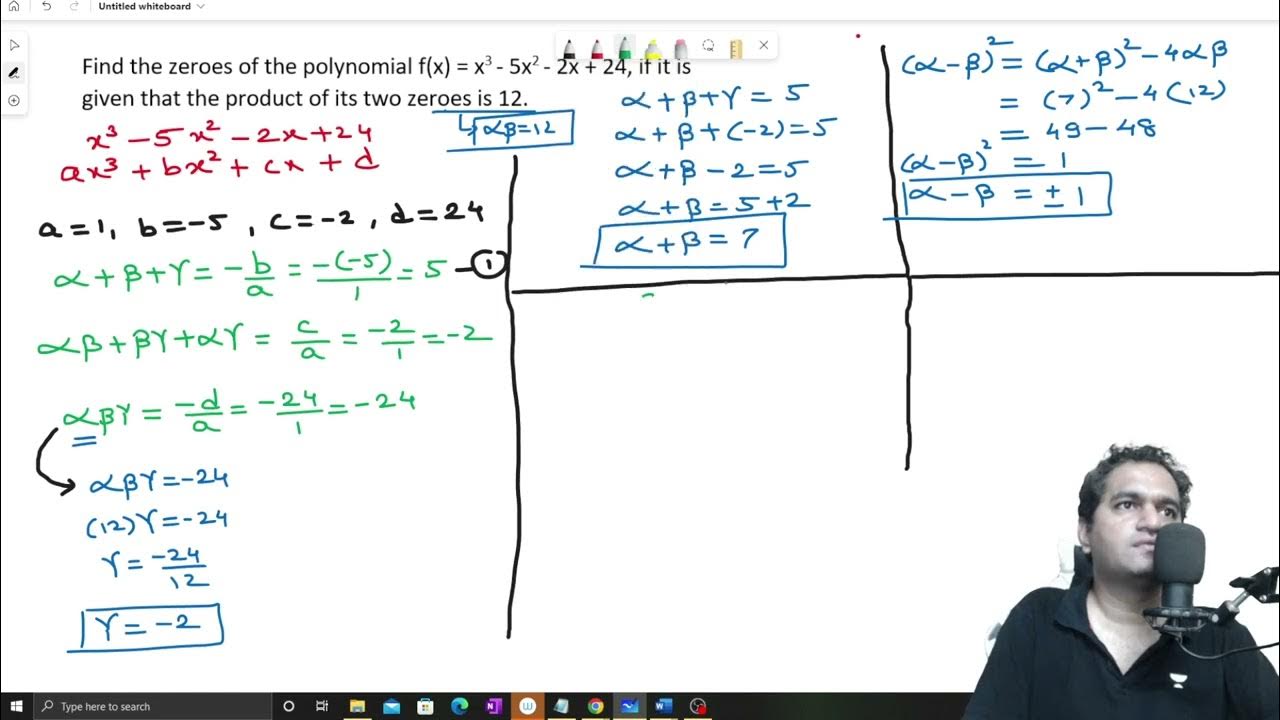 Untitled whiteboard
Find the zeroes of the polynomial f(x) = x³ - 5x² - 2x + 24, if it is
given that the product of its two zeroes is 12.
αβ=12
x³ - 5x² - 2x + 24
ax³ + bx² + cx + d
a=1, b=-5, c=-2, d=24
α+β+γ = -b/a = -(-5)/1 = 5 - ①
αβ+βγ+αγ = c/a = -2/1 = -2
αβγ = -d/a = -24/1 = -24
αβγ=-24
(12)γ=-24
γ = -24/12
γ = -2
α+β+γ = 5
α+β+(-2)=5
α+β-2=5
α+β=5+2
α+β=7
(α-β)² = (α+β)² - 4αβ
= (7)² - 4(12)
= 49 - 48
(α-β)² = 1
α-β = ±1
Type here to search